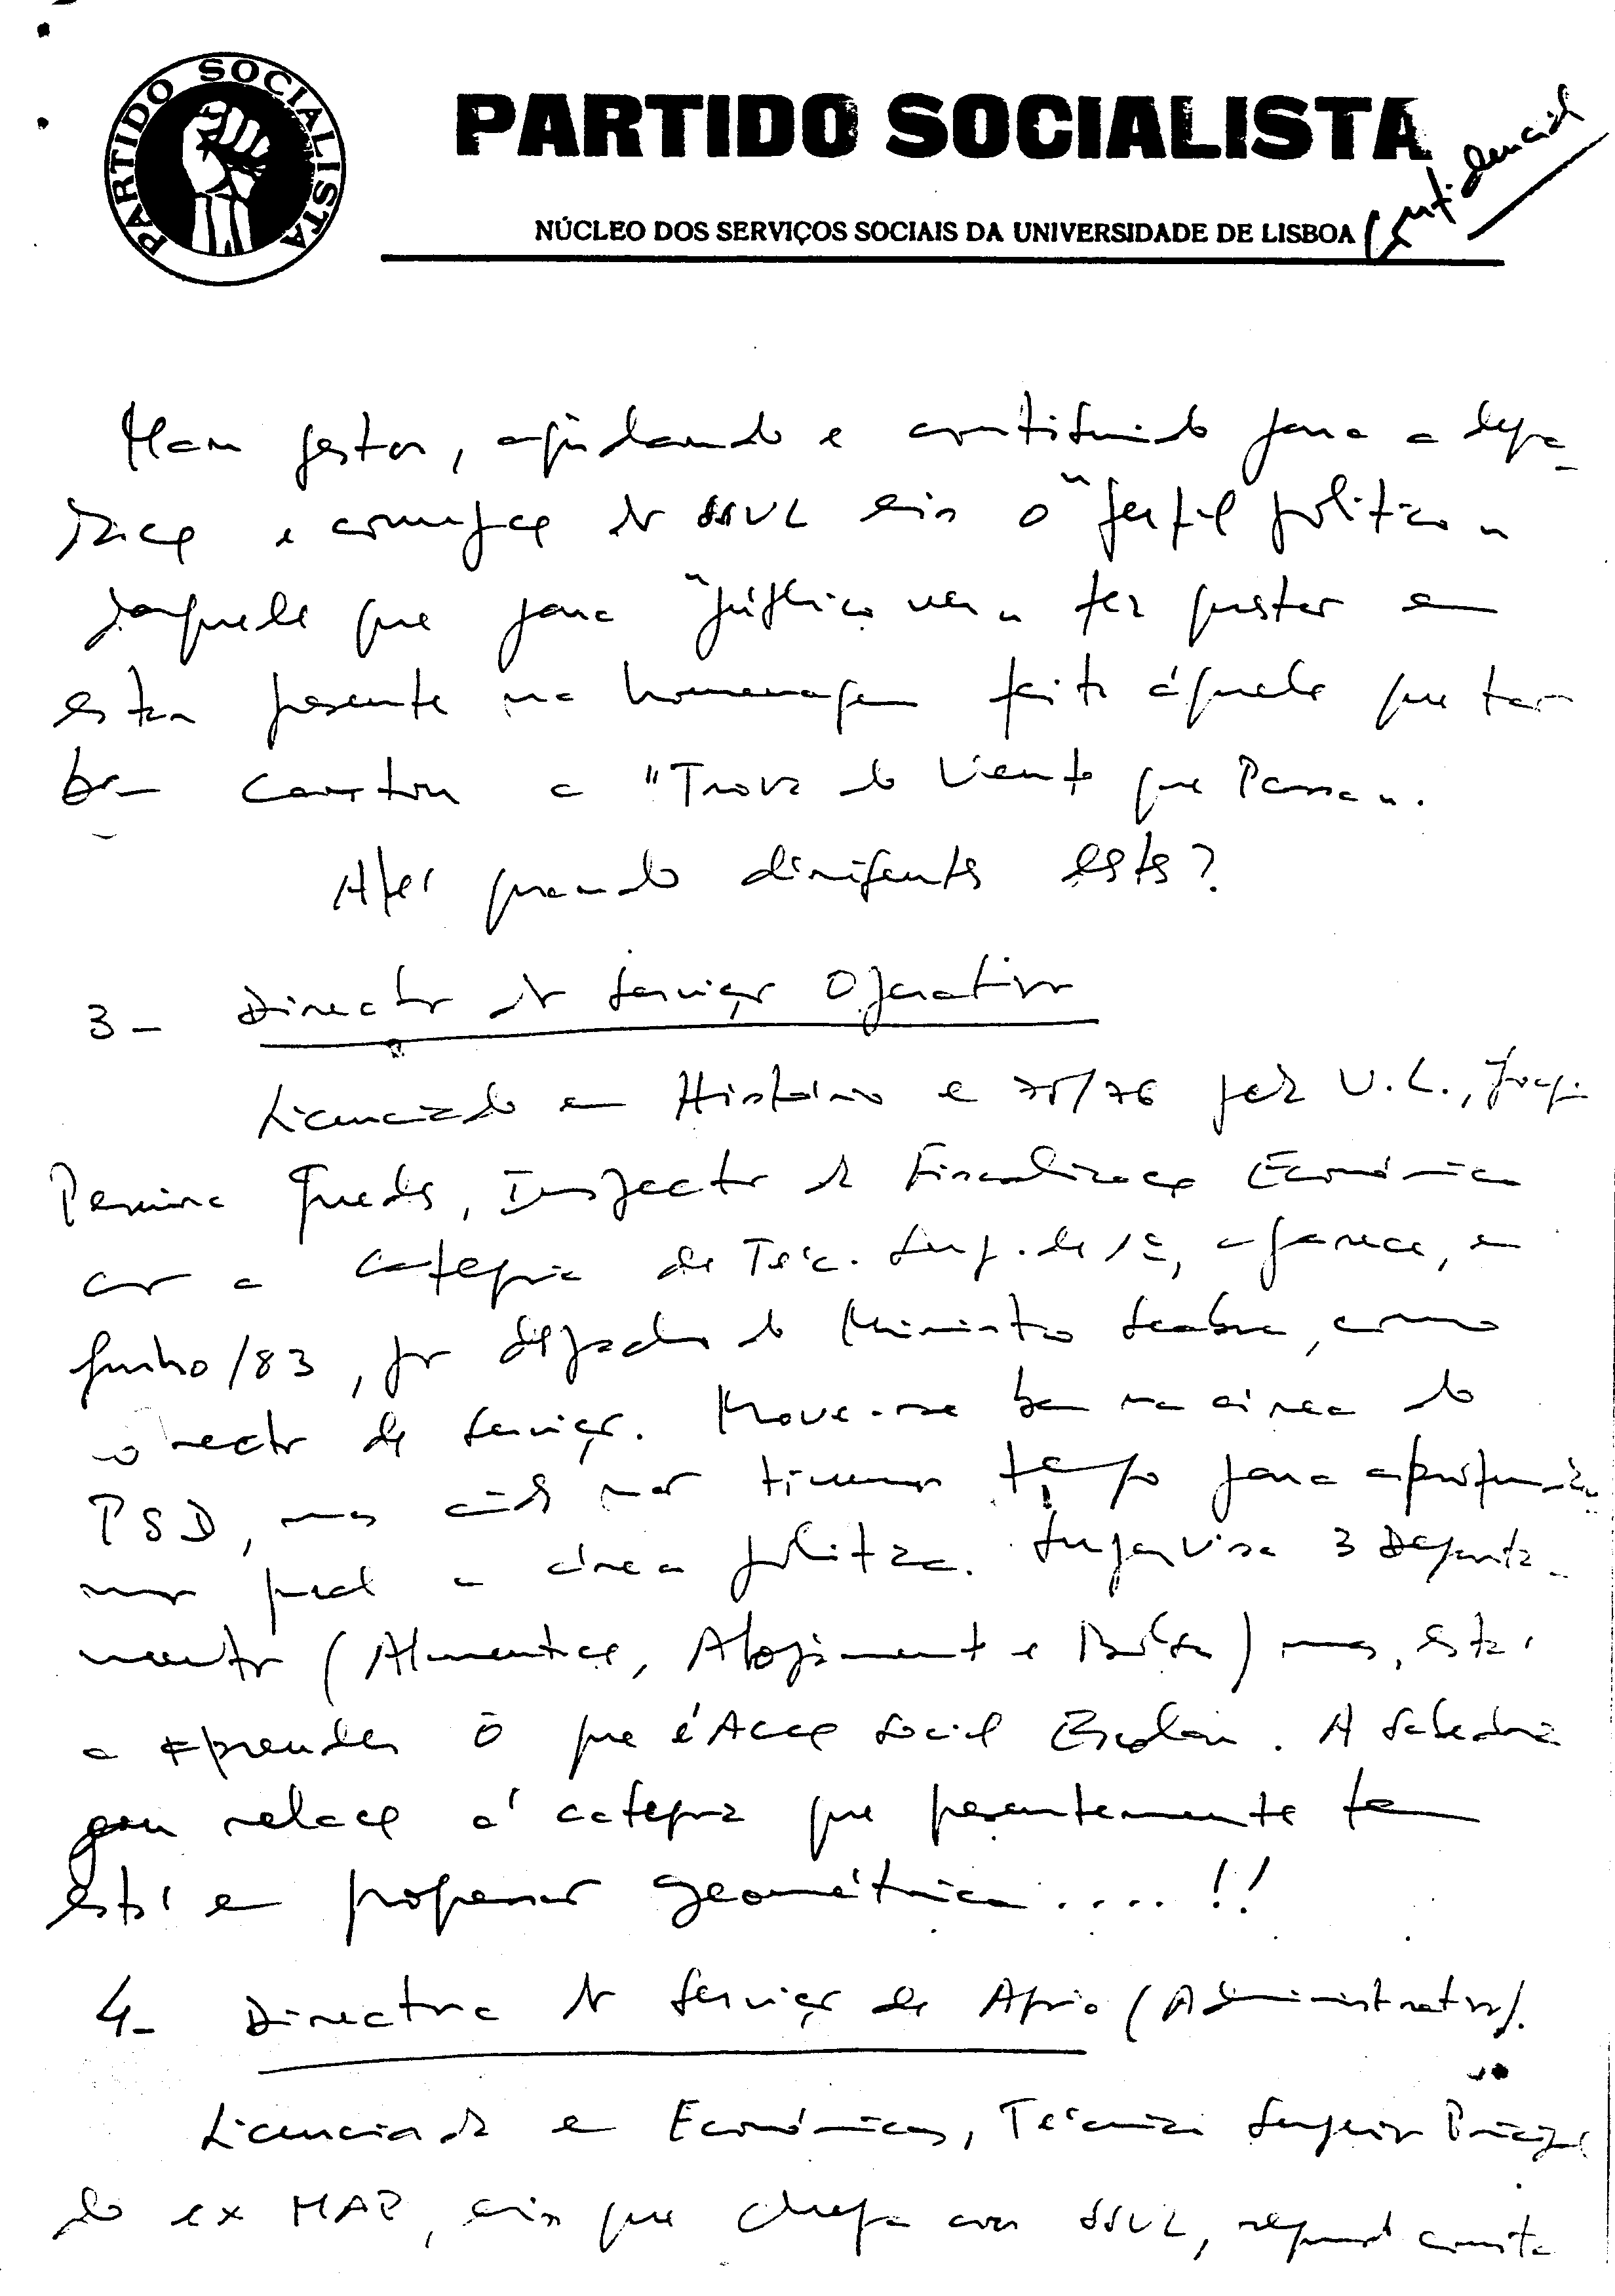 PARTIDO SOCIALISTA
PARTIDO SOCIALISTA
Confidencial
NÚCLEO DOS SERVIÇOS SOCIAIS DA UNIVERSIDADE DE LISBOA
Mau gestor, ajudando e contribuindo para a degra-
dação e corrupção dos SSUL eis o "perfil político"
daquele que para "público ver" fez questão em
estar presente na homenagem feita áquele que tam
bem cantou a "Trova do Vento que Passa".
Até quando dirigentes estes?
3 - Director dos Serviços Operativos
Licenciado em História em 75/76 pela U.L.,
Pereira Guedes, Inspector da Fiscalização Económica
com a categoria de Téc. Sup. de 1ª, aparece, em
Junho/83, por despacho do Ministro Seabra, como
Director de Serviços. Move-se bem na área do
PSD, mas ainda não tivemos tempo para aprofundar
mos qual a área política. Supervisa 3 Departa-
mentos (Alimentação, Alojamento e Bolsas) mas, está
a aprender o que é Acção Social Escolar. A sabedoria
em relação á categoria que presentemente tem
está em proporção geométrica....!!
4- Directora dos Serviços de Apoio (Administrativos).
Licenciada em Económicas, Técnica Superior Principal
do ex MAP, eis que chega aos SSUL, segundo consta